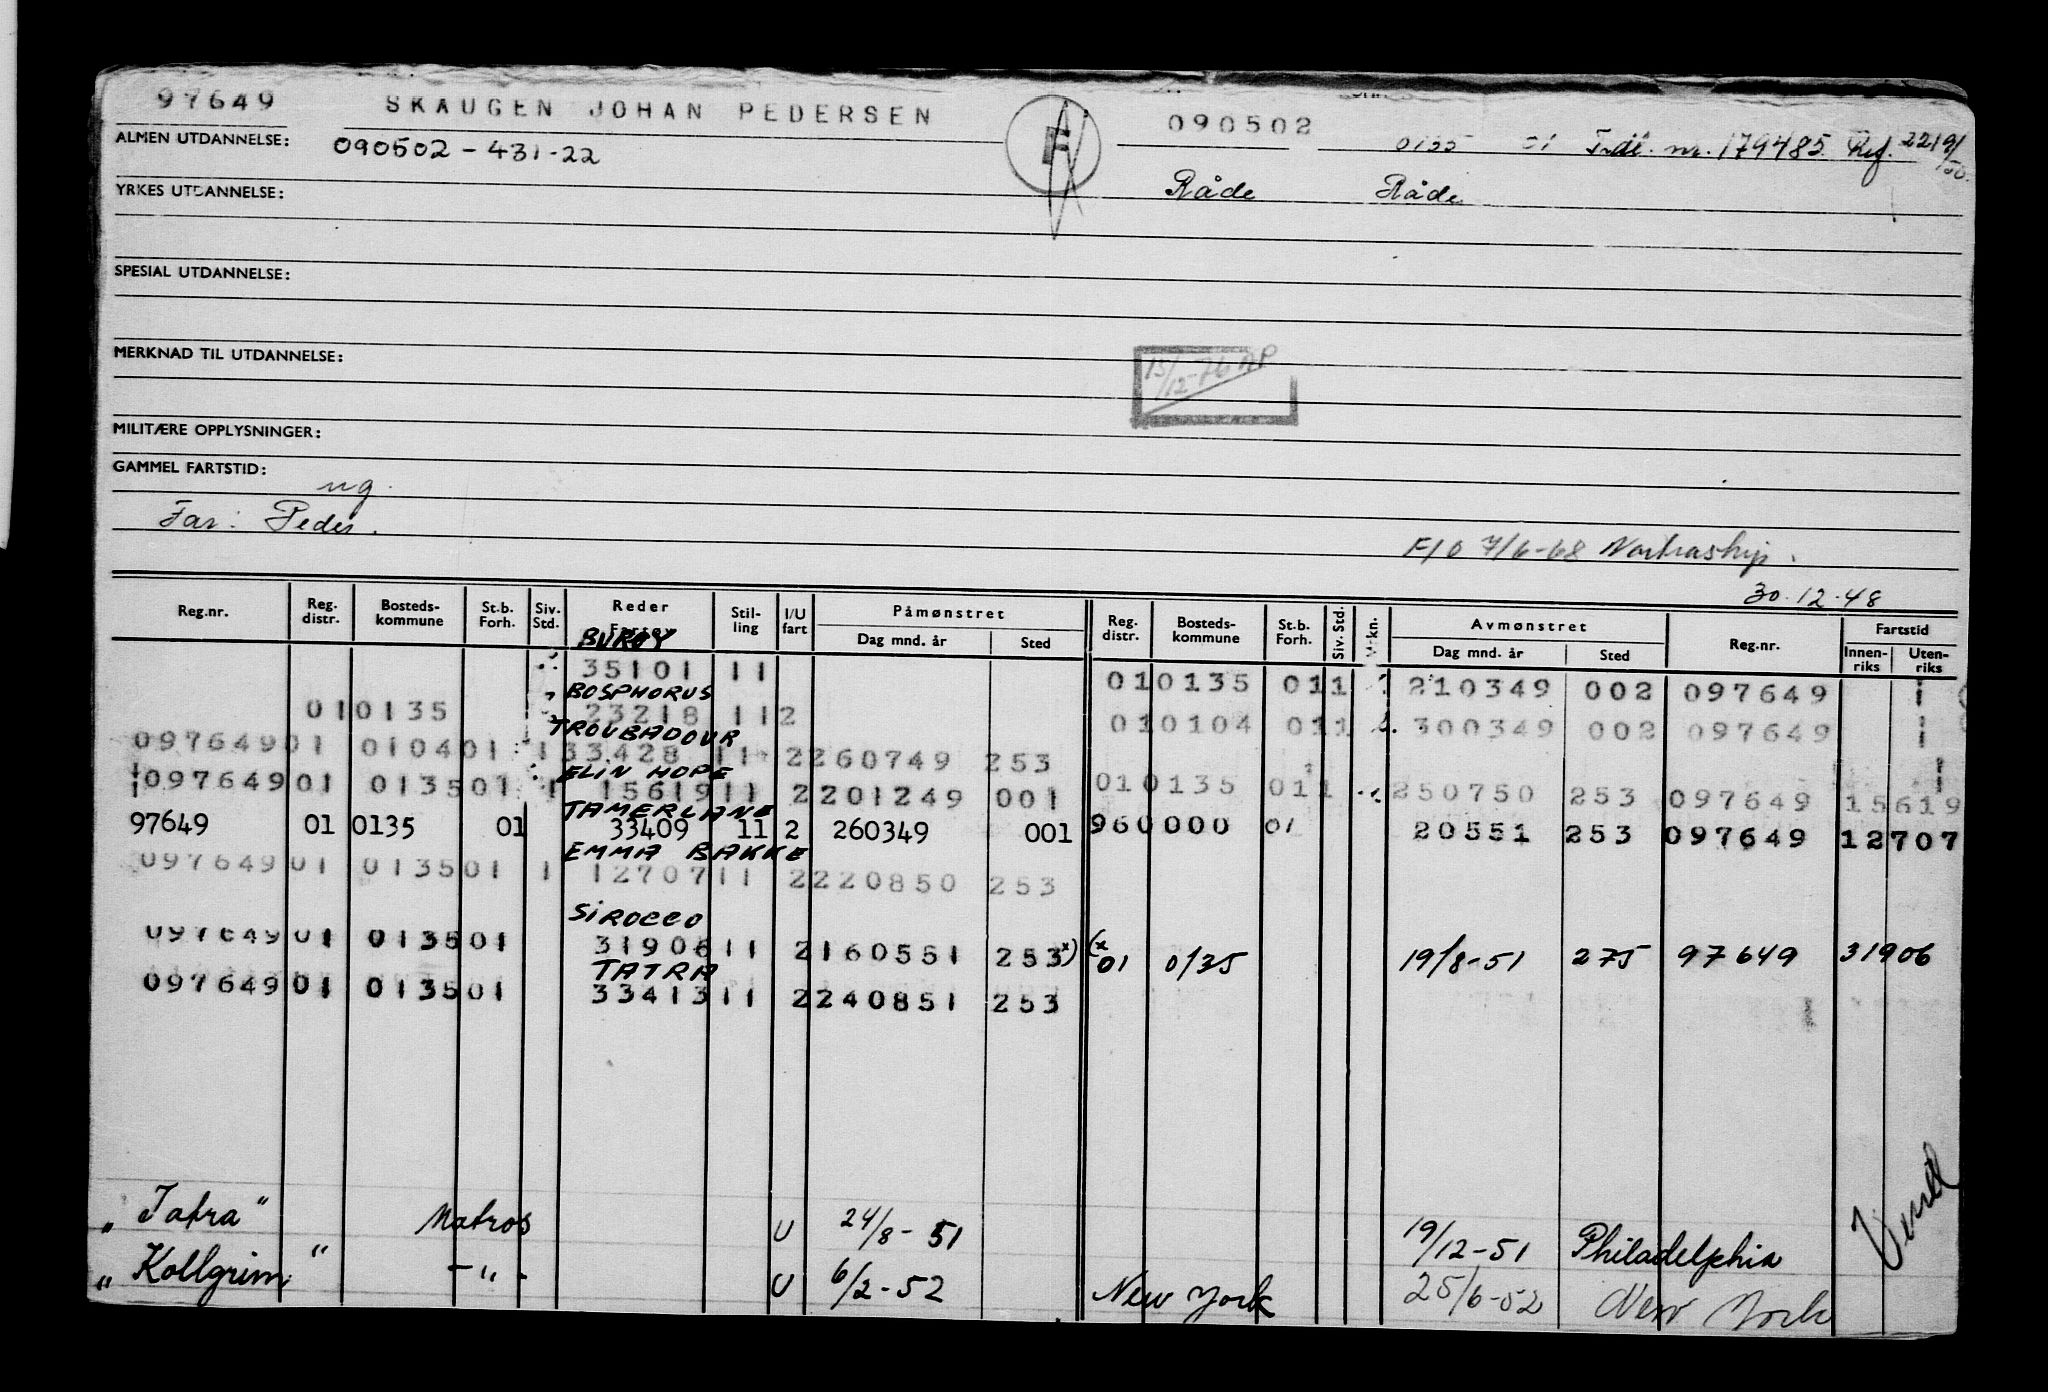 97649 SKAUGEN JOHAN PEDERSEN F 090502 0135 01 nr. 179485 Ref. 2219/50.
ALMEN UTDANNELSE: 090502-431-22
YRKES UTDANNELSE: Råde Råde
SPESIAL UTDANNELSE:
MERKNAD TIL UTDANNELSE:
15/12-76 AP
MILITÆRE OPPLYSNINGER:
GAMMEL FARTSTID:
ug.
Far: Peder.
F10 7/6-68 Nortraship.
30.12.48
Reg.nr. Reg. distr. Bosteds-kommune St.b. Forh. Siv. Std. Reder Stil-ling I/U fart Påmønstret Dag mnd. år Sted Reg. distr. Bosteds-kommune St.b. Forh. Siv. Std. Avmønstret Dag mnd. år Sted Reg.nr. Fartstid Innen-riks Uten-riks
BUROY
35101 11 010135 011 210349 002 097649
BOSPHORUS
010135 23218 112 010104 011 300349 002 097649
TROUBADOUR
09764901 010401 1 33428 11 2260749 253
ELIN HOPE
09764901 013501 1 15619 11 2201249 001 010135 011 250750 253 097649 15619
TAMERLANE
97649 01 0135 01 33409 11 2 260349 001 960000 01 20551 253 097649 12707
EMMA BAKKE
09764901 013501 1 12707 11 2220850 253
SIROCCO
09764901 013501 31906 11 2160551 253 x) (x 01 0135 19/8-51 275 97649 31906
TATRA
09764901 013501 33413 11 2240851 253
Vend
"Tatra" Matros U 24/8-51 19/12-51 Philadelphia
"Kollgrim" -"- U 6/2-52 New York 25/6-52 New York